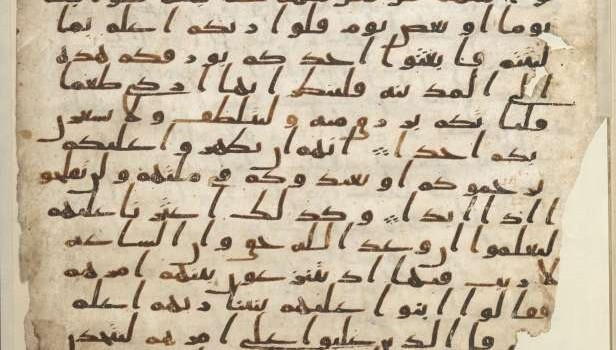 يوما او بعض يوم قلوا ربكم اعلم بما
لبثتم فابعثوا احدكم بورقكم هذه
الى المدينه فلينظر ايها ازكى طعما
فلياتكم برزق منه وليتلطف ولا يشعرن
بكم احدا انهم ان يظهروا عليكم
يرجموكم او يعيدوكم في ملتهم ولن تفلحوا
اذا ابدا وكذلك اعثرنا عليهم
ليعلموا ان وعد الله حق وان الساعه
لا ريب فيها اذ يتنزعون بينهم امرهم
فقالوا ابنوا عليهم بنينا ربهم اعلم
قال الذين غلبوا على امرهم لنتخذن